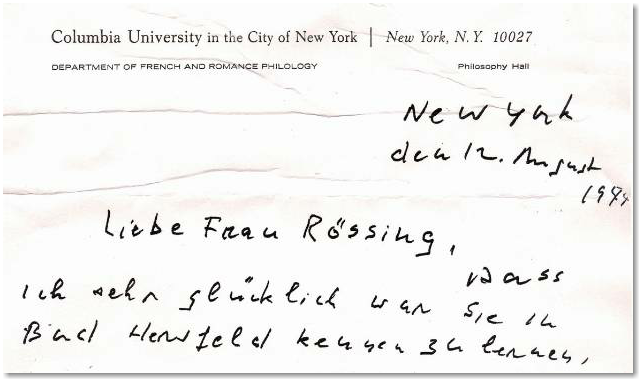 Columbia University in the City of New York | New York, N. Y. 10027
DEPARTMENT OF FRENCH AND ROMANCE PHILOLOGY Philosophy Hall
New York
den 12. August
Liebe Frau Rössing,
dass
ich sehr glücklich war Sie in
Bad Hersfeld kennen zu lernen,